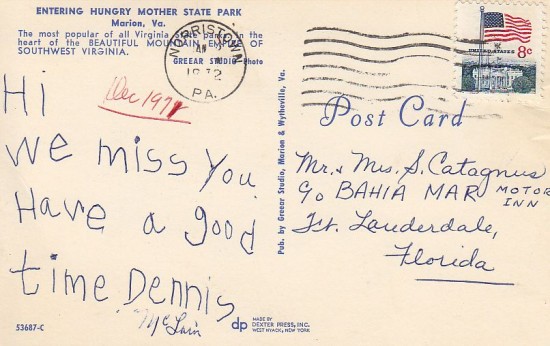 ENTERING HUNGRY MOTHER STATE PARK
Marion, Va.
The most popular of all Virginia State parks in the
heart of the BEAUTIFUL MOUNTAIN EMPIRE OF
SOUTHWEST VIRGINIA.
GREEAR STUDIO Photo
NORRISTOWN
1972
PA.
UNITED STATES 8c
Dec 1971
Hi
we miss you
Have a good
time Dennis
McLain
53687-C
Pub. by Greear Studio, Marion & Wytheville, Va.
dp MADE BY
DEXTER PRESS, INC.
WEST NYACK, NEW YORK
Post Card
Mr. & Mrs. S. Catagnus
c/o BAHIA MAR MOTOR
INN
Ft. Lauderdale,
Florida